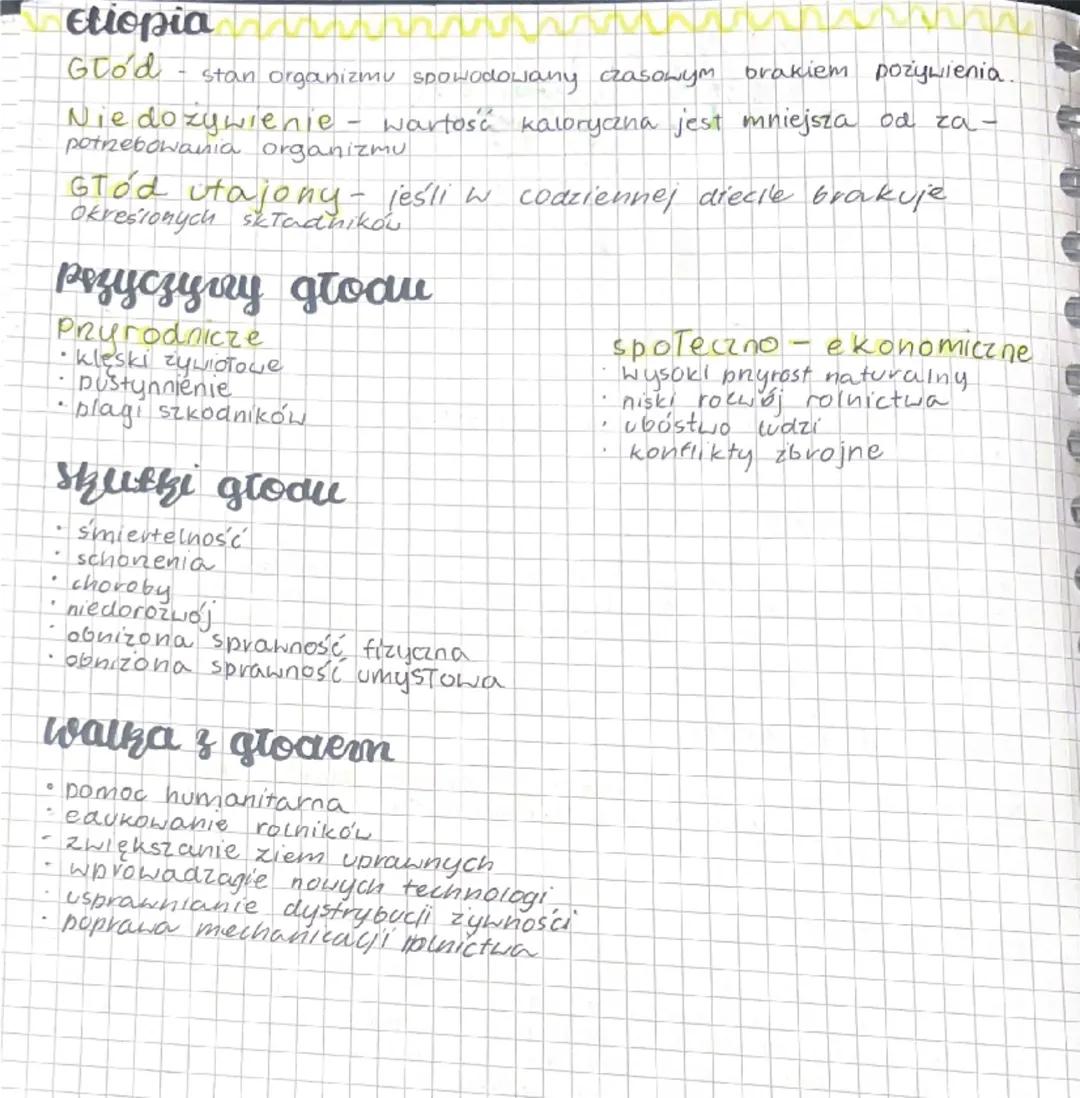 Etiopia
Głód - stan organizmu spowodowany czasowym brakiem pożywienia.
Niedożywienie - wartość kaloryczna jest mniejsza od za-
potrzebowania organizmu
Głód utajony - jeśli w codziennej diecie brakuje
określonych składników
Przyczyny głodu
Przyrodnicze
• klęski żywiołowe
• pustynnienie
• plagi szkodników
społeczno - ekonomiczne
• wysoki przyrost naturalny
• niski rozwój rolnictwa
• ubóstwo ludzi
• konflikty zbrojne
Skutki głodu
• śmiertelność
• schorzenia
• choroby
• niedorozwój
• obniżona sprawność fizyczna
• obniżona sprawność umysłowa
Walka z głodem
• pomoc humanitarna
• edukowanie rolników
- zwiększanie ziem uprawnych
• wprowadzagie nowych technologi
• usprawnianie dystrybucji żywności
• poprawa mechanizacji rolnictwa